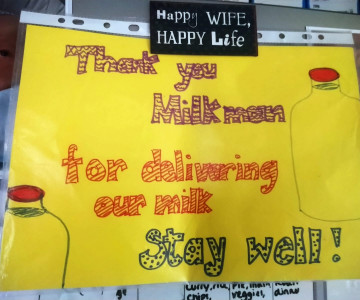 Happy WIFE,
HAPPY Life
Thank you
Milkman
for delivering
our milk
Stay well!